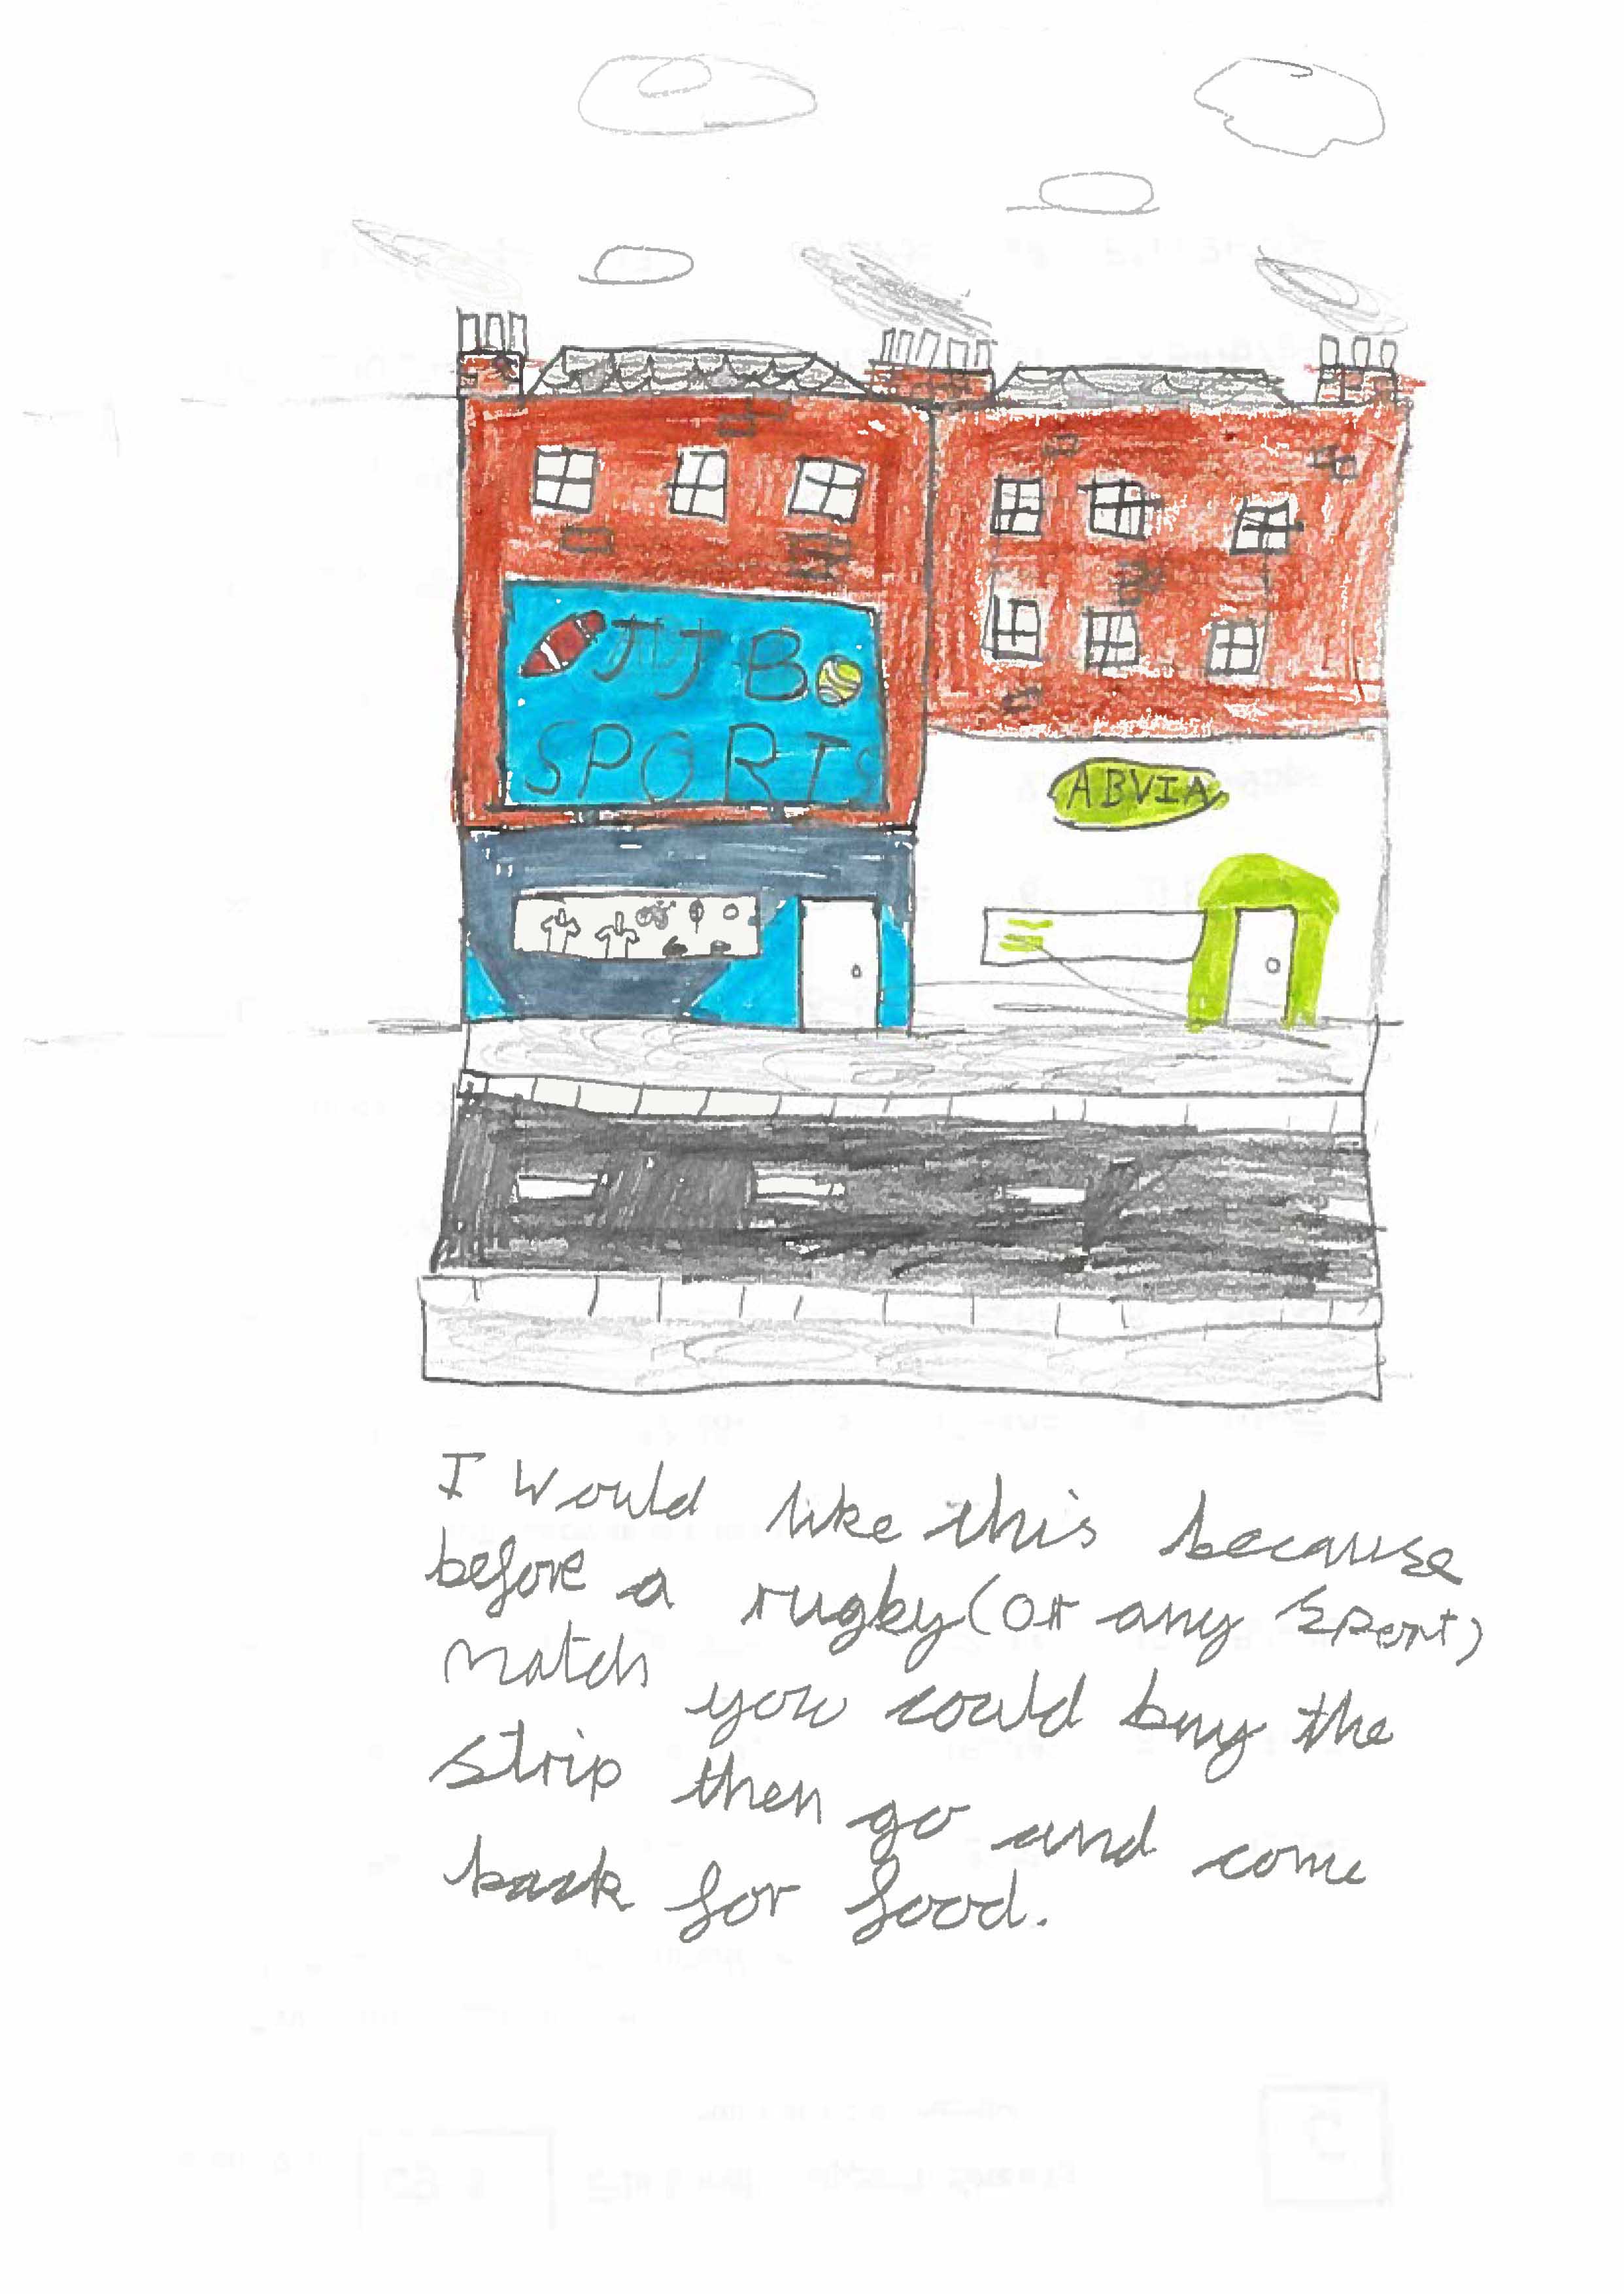 JJB
SPORTS
ABVIA
I would like this because
before a rugby (or any sport)
match you could buy the
strip then go and come
back for food.